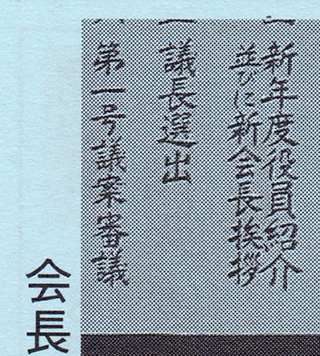 一 新年度役員紹介
並びに新会長挨拶
一 議長選出
一 第一号議案審議
会長